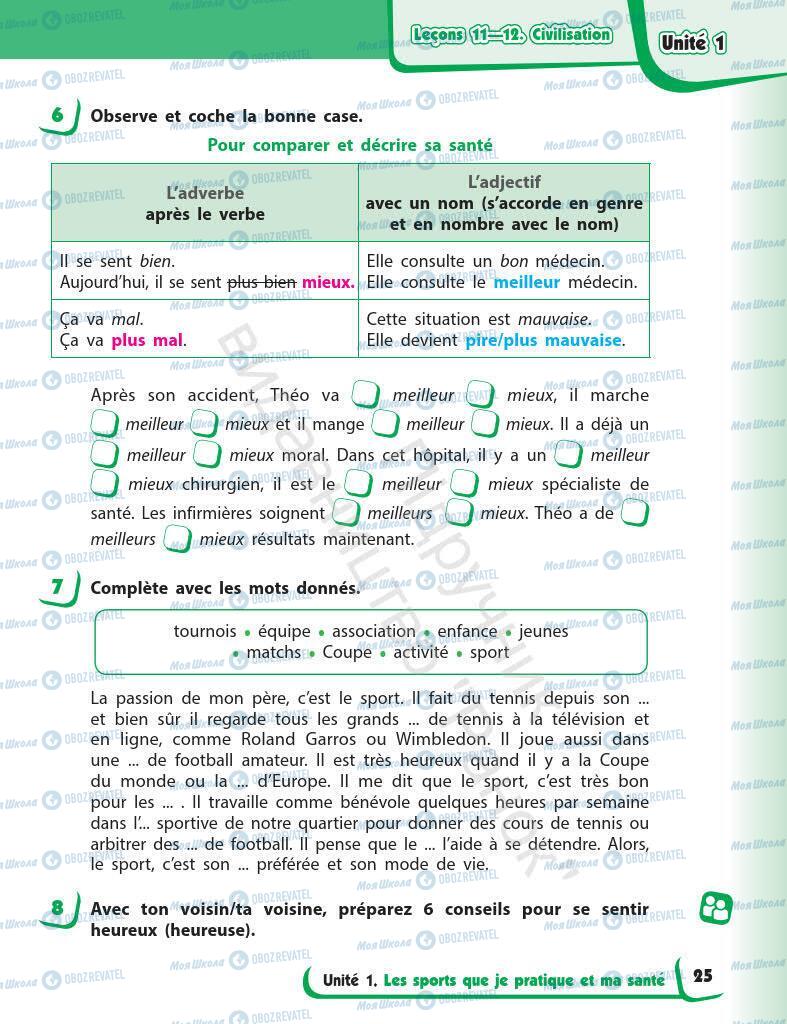 Leçons 11—12. Civilisation
Unité 1
6 Observe et coche la bonne case.
Pour comparer et décrire sa santé
L’adverbe
après le verbe
L’adjectif
avec un nom (s’accorde en genre
et en nombre avec le nom)
Il se sent bien.
Aujourd’hui, il se sent plus bien mieux.
Elle consulte un bon médecin.
Elle consulte le meilleur médecin.
Ça va mal.
Ça va plus mal.
Cette situation est mauvaise.
Elle devient pire/plus mauvaise.
Après son accident, Théo va meilleur mieux, il marche
meilleur mieux et il mange meilleur mieux. Il a déjà un
meilleur mieux moral. Dans cet hôpital, il y a un meilleur
mieux chirurgien, il est le meilleur mieux spécialiste de
santé. Les infirmières soignent meilleurs mieux. Théo a de
meilleurs mieux résultats maintenant.
7 Complète avec les mots donnés.
tournois • équipe • association • enfance • jeunes
• matchs • Coupe • activité • sport
La passion de mon père, c’est le sport. Il fait du tennis depuis son ...
et bien sûr il regarde tous les grands ... de tennis à la télévision et
en ligne, comme Roland Garros ou Wimbledon. Il joue aussi dans
une ... de football amateur. Il est très heureux quand il y a la Coupe
du monde ou la ... d’Europe. Il me dit que le sport, c’est très bon
pour les ... . Il travaille comme bénévole quelques heures par semaine
dans l’... sportive de notre quartier pour donner des cours de tennis ou
arbitrer des ... de football. Il pense que le ... l’aide à se détendre. Alors,
le sport, c’est son ... préférée et son mode de vie.
8 Avec ton voisin/ta voisine, préparez 6 conseils pour se sentir
heureux (heureuse).
Unité 1. Les sports que je pratique et ma santé
25
Моя Школа OBOZREVATEL
Підручник
Видавництво "Ранок"